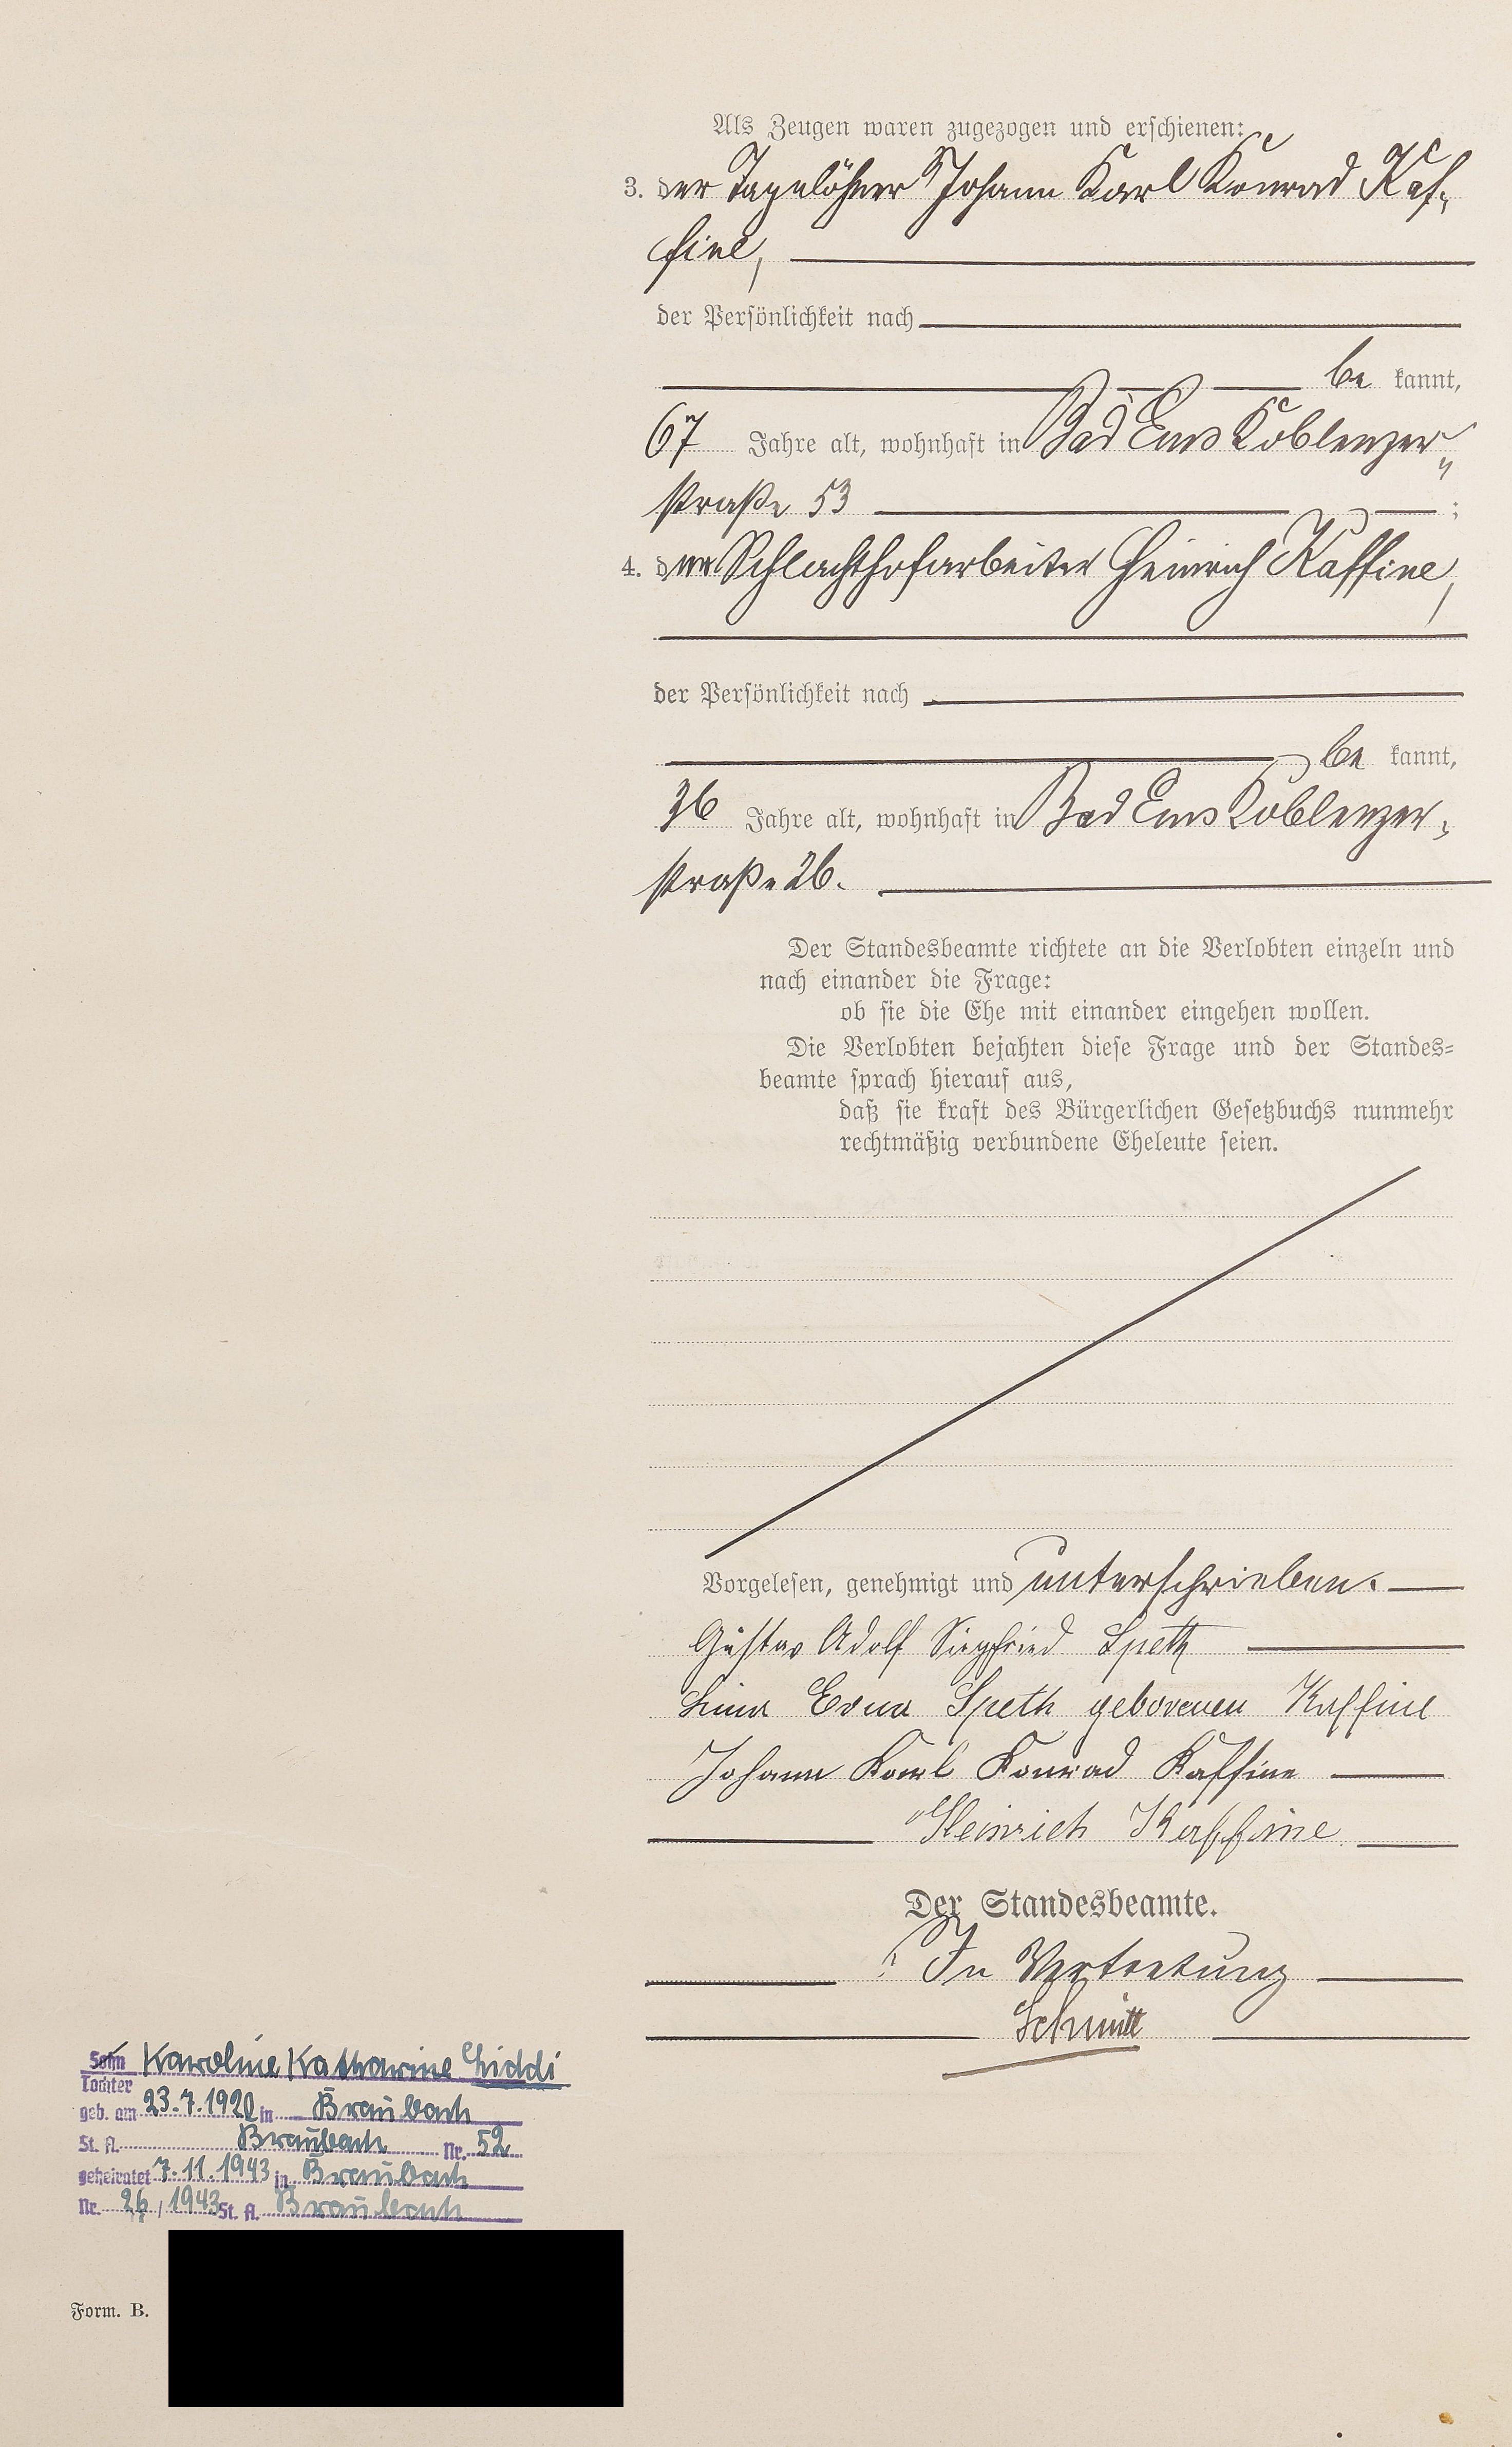 Als Zeugen waren zugezogen und erschienen:
3. der Tagelöhner Johann Karl Konrad Kaf-
fine,
der Persönlichkeit nach
be kannt,
67 Jahre alt, wohnhaft in Bad Ems Koblenzer-
straße 53 ;
4. der Schlachthofarbeiter Heinrich Kaffine,
der Persönlichkeit nach
be kannt,
36 Jahre alt, wohnhaft in Bad Ems Koblenzer-
straße 26.
Der Standesbeamte richtete an die Verlobten einzeln und
nach einander die Frage:
ob sie die Ehe mit einander eingehen wollen.
Die Verlobten bejahten diese Frage und der Standes-
beamte sprach hierauf aus,
daß sie kraft des Bürgerlichen Gesetzbuchs nunmehr
rechtmäßig verbundene Eheleute seien.
Vorgelesen, genehmigt und unterschrieben.
Gustav Adolf Siegfried Speth
Lina Erna Speth geborenen Kaffine
Johann Karl Konrad Kaffine
Heinrich Kaffine
Der Standesbeamte.
In Vertretung
Schmitt
Sohn Karoline Katharine Liddi
Tochter
geb. am 23.7.1920 in Braubach
St. A. Braubach Nr. 52
geheiratet 7.11.1943 in Braubach
Nr. 26/1943 St. A. Braubach
Form. B.